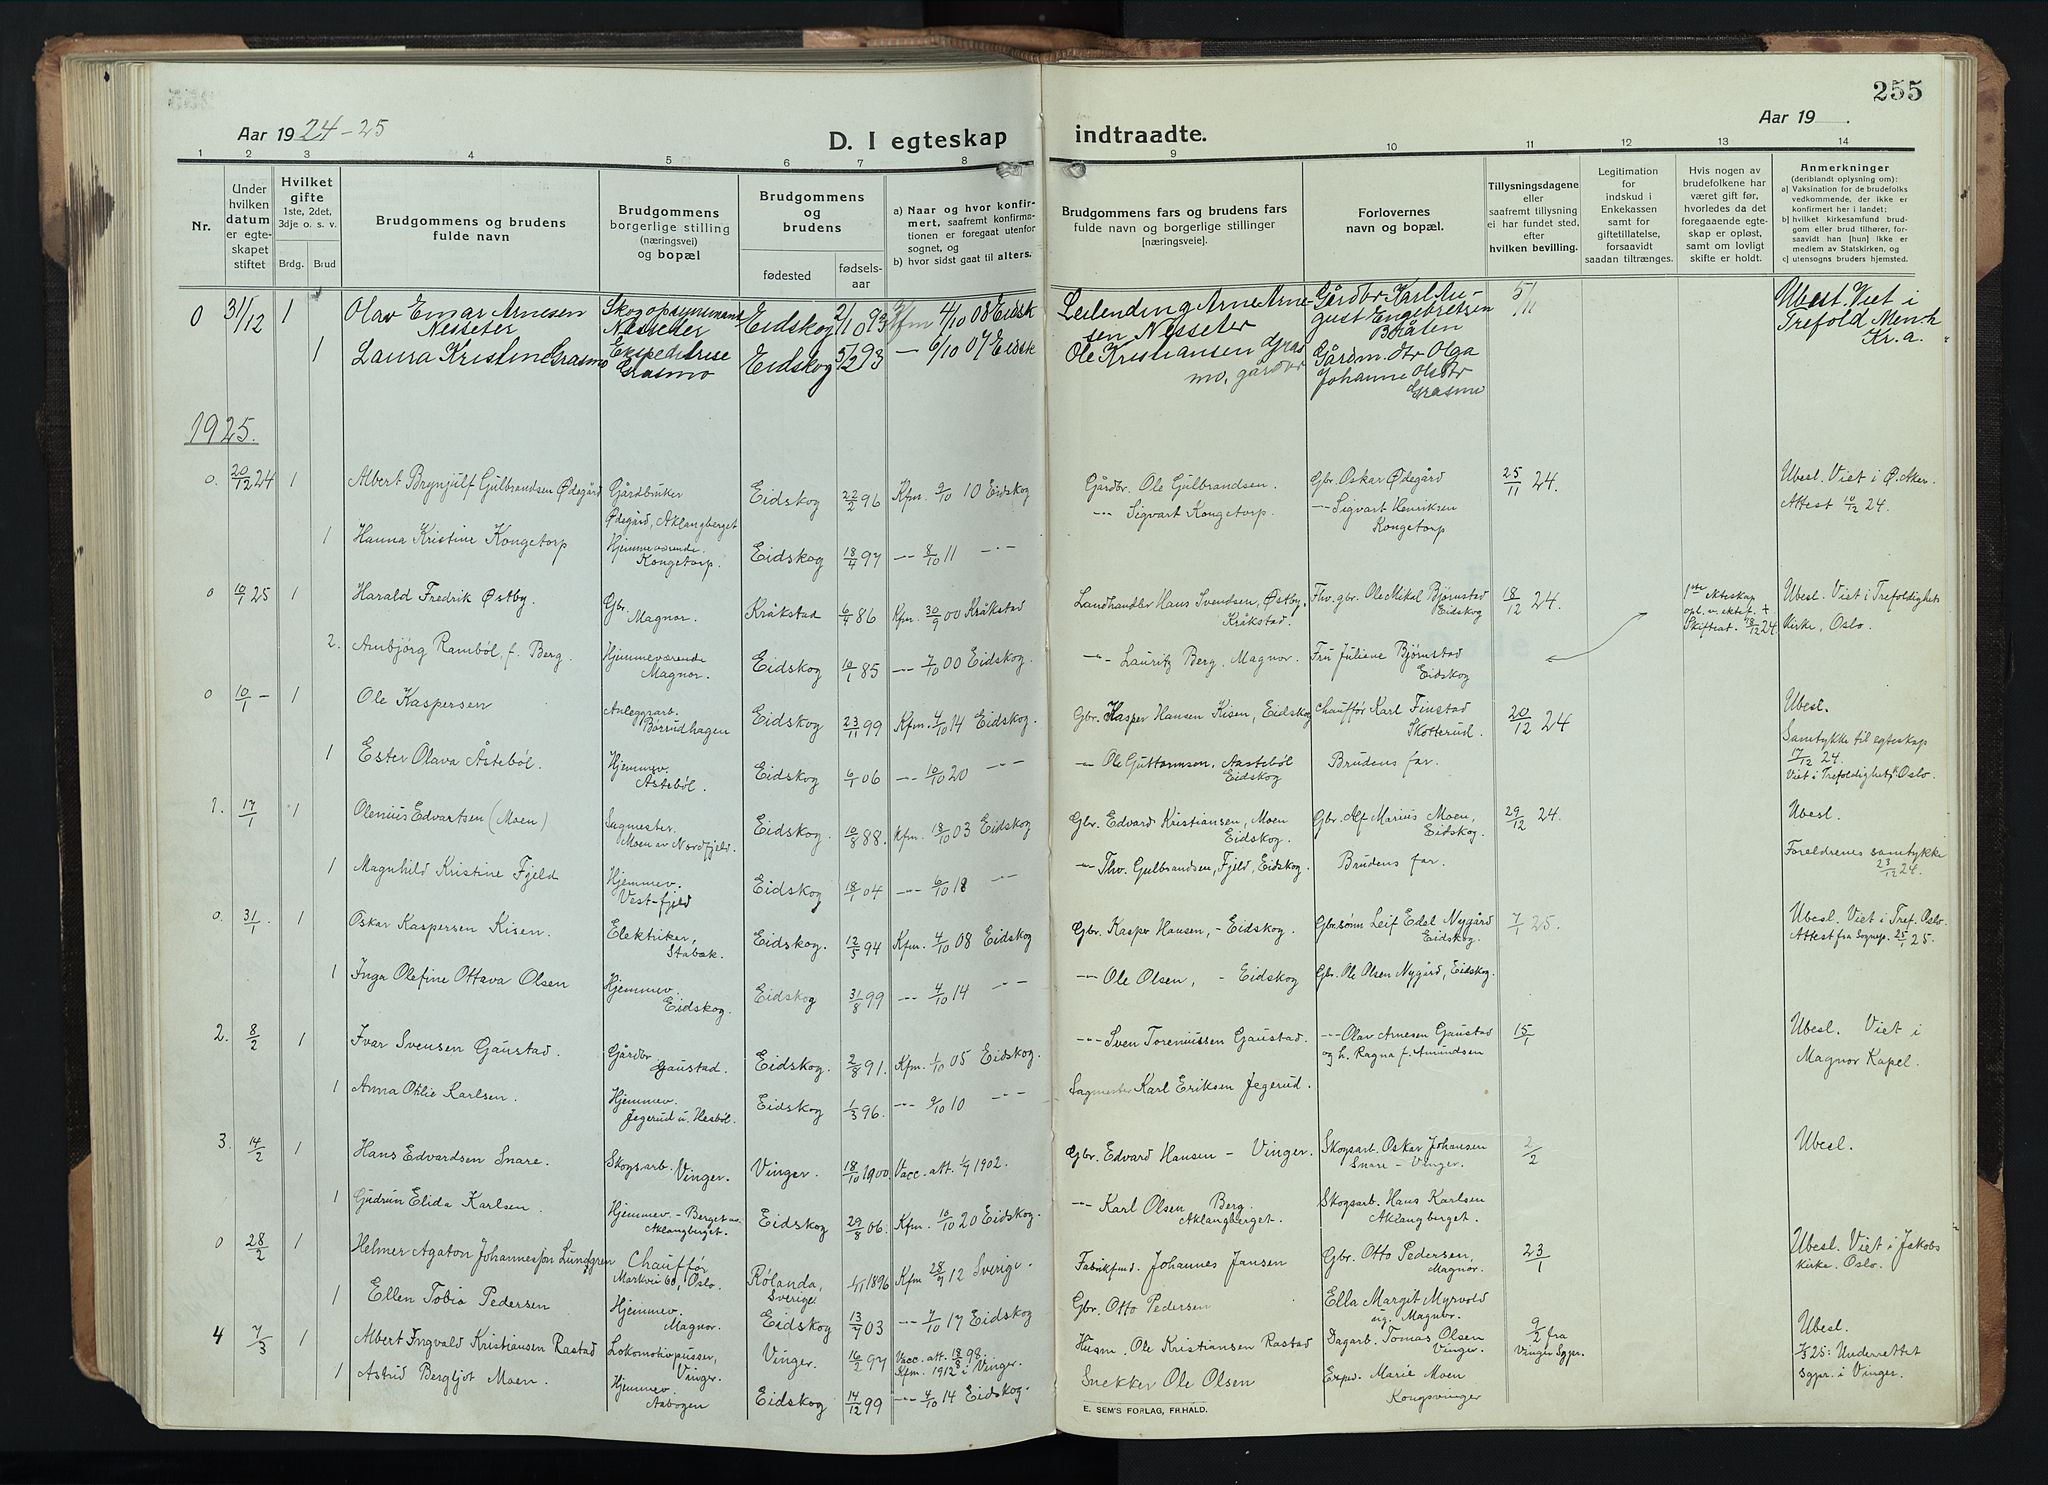 255
Aar 1924-25
D. I egteskap
indtraadte.
Aar 19 .
1 2 3 4 5 6 7 8 9 10 11 12 13 14
Nr.
Under hvilken datum er egteskapet stiftet
Hvilket gifte 1ste, 2det, 3dje o. s. v.
Brdg. Brud
Brudgommens og brudens fulde navn
Brudgommens borgerlige stilling (næringsvei) og bopæl
Brudgommens og brudens
fødested
fødselsaar
a) Naar og hvor konfirmert, saafremt konfirmationen er foregaat utenfor sognet, og
b) hvor sidst gaat til alters.
Brudgommens fars og brudens fars fulde navn og borgerlige stillinger [næringsveie].
Forlovernes navn og bopæl.
Tillysningsdagene eller saafremt tillysning ei har fundet sted, efter hvilken bevilling.
Legitimation for indskud i Enkekassen samt for giftetillatelse, forsaavidt saadan tiltrænges.
Hvis nogen av brudefolkene har været gift før, hvorledes da det foregaaende egteskap er opløst, samt om lovligt skifte er holdt.
Anmerkninger (deriblandt oplysning om):
a) Vaksination for de brudefolks vedkommende, der ikke er konfirmert her i landet;
b) hvilket kirkesamfund brudgom eller brud tilhører, forsaavidt han [hun] ikke er medlem av Statskirken, og
c) utensogns bruders hjemsted.
0 31/12 1 Olav Emar Arnesen Nesseter Skogopsynsmand Nesseter Eidskog 2/10 93 Kfm 4/10 08 Eidsk Leilending Arne Arnesen Nesseter Gårdbr. Karl August Engebretsen Bråten 5/11 Ubest. Viet i Trefold. Men.h. Kr.a.
1 Laura Kristine Grasmo Ekspeditrise Grasmo Eidskog 5/2 93 — 6/10 07 Eidsk Ole Kristiansen Grasmo, gårdbr Gårdm. dtr Olga Johanne Olsdtr Grasmo
1925.
0. 20/12 24 1 Albert Brynjulf Gulbrandsen Ødegård Gårdbruker Ødegård, Aklangberget Eidskog 22/2 96 Kfm. 9/10 10 Eidskog Gårdbr. Ole Gulbrandsen. Gbr. Oskar Ødegård 25/11 24. Ubesl. Viet i Ø. Aker. Attest 10/12 24.
1 Hanna Kristine Kongetorp Hjemmeværende. Kongetorp. Eidskog 18/4 97 -- 8/10 11 -"- -"- Sigvart Kongetorp. -"- Sigvart Henriksen Kongetorp
0 10/1 25 1 Harald Fredrik Østby. Gbr. Magnor. Kråkstad 6/4 86 Kfm. 30/9 00 Kråkstad Landhandler Hans Svendsen, Østby, Kråkstad. Fhv. gbr. Ole Mikal Bjørnstad Eidskog 18/12 24. 1ste ekteskap opl. v. ektef. † Skifteat. 18/12 24. Ubesl. Viet i Trefoldighets Kirke, Oslo.
2. Ambjörg Ramböl, f. Berg. Hjemmeværende Magnor. Eidskog 10/1 85 -- 7/10 00 Eidskog. -"- Lauritz Berg, Magnor. Fru Juliane Bjørnstad Eidskog
0 10/1 - 1 Ole Kaspersen Anleggsarb. Børrudhagen Eidskog 23/11 99 Kfm. 4/10 14 Eidskog. Gbr. Kasper Hansen Kisen, Eidskog Chauffør Karl Finstad Skotterud. 20/12 24 Ubesl.
1 Ester Olava Åstebøl. Hjemmev. Åstebøl. Eidskog 6/1 06 -- 10/10 20 -"- -"- Ole Guttormsen, Aastebøl Eidskog Brudens far. Samtykke til egteskap 17/12 24. Viet i Trefoldighetsk. Oslo.
1. 17/1 1 Olenius Edvartsen (Moen) Sagmester. Moen av Nordfjeld. Eidskog. 10/8 88. Kfm. 18/10 03 Eidskog Gbr. Edvard Kristiansen, Moen Eidskog. Gbr. Alf Marius Moen, Eidskog. 29/12 24. Ubesl.
1 Magnhild Kristine Fjeld Hjemmev. Vest-fjeld Eidskog 18/1 04 -- 6/10 18 -"- -"- Thv. Gulbrandsen, Fjeld, Eidskog. Brudens far. Foreldrenes samtykke 23/12 24.
0. 31/1. 1 Oskar Kaspersen Kisen. Elektriker, Stabæk. Eidskog. 12/5 94 Kfm. 4/10 08 Eidskog Gbr. Kasper Hansen, - Eidskog. Gbr.sønn Leif Edel Nygård Eidskog. 7/1 25. Ubesl. Viet i Tref. Oslo. Attest fra Sognep. 25/1 25.
1 Inga Olefine Ottava Olsen Hjemmev. Eidskog. Eidskog 31/8 99 -- 4/10 14 -"- -"- Ole Olsen, - Eidskog Gbr. Ole Olsen Nygård, Eidskog.
2. 8/2 1 Ivar Svensen Gaustad. Gårdbr Gaustad. Eidskog. 2/8 91. Kfm. 1/10 05 Eidskog. -"- Sven Toreniussen Gaustad. -"- Olav Arnesen Gaustad og h. Ragna f. Amundsen 15/1 Ubesl. Viet i Magnor Kapel.
1 Anna Otilie Karlsen. Hjemmev. Jegerud u. Hesbøl. Eidskog 1/3 96. -"- 9/10 10 -"- Sagmester Karl Eriksen Jegerud.
3. 14/2 1 Hans Edvardsen Snare. Skogsarb. Vinger. Vinger. 18/10 1900. Vacc. att. 1/7 1902. Gbr. Edvard Hansen - Vinger. Skogsarb. Oskar Johansen Snare - Vinger. 2/2 Ubesl.
1 Gudrun Elida Karlsen. Hjemmev. - Berget av Aklangberget. Eidskog 29/8 06. Kfm. 10/10 20 Eidskog. -"- Karl Olsen Berg. Aklangberget. Skogsarb. Hans Karlsen Aklangberget.
0 28/2 1 Helmer Agaton Johannesson Lundgren Chauffør Markvei 60, Oslo. Rölanda, Sverige 1/11 1896 Kfm 28/9 12 Sverige. Fabrikfmd. Johannes Jansen Gbr. Otto Pedersen, Magnor. 23/1 Ubesl. Viet i Jakobs Kirke. Oslo.
1 Ellen Tobia Pedersen Hjemmev. Magnor. Eidskog 13/7 03 -"- 7/10 17 Eidskog Gbr. Otto Pedersen Ella Margit Myrvold sig. Magnor.
4 7/3 1 Albert Ingvald Kristiansen Rastad Lokomotivpusser, Vinger. Vinger. 16/2 97 Vacc. att. 18/8 98. Kfm. 1912 i Vinger. Husm. Ole Kristiansen Rastad Dagarb. Tomas Olsen Vinger. 9/2 fra Vinger Sgpr. Ubesl. 7/3 25: Underrettet Sgpr. i Vinger.
1 Astrid Bergljot Moen. Hjemmev. Aabogen Eidskog 14/12 99 -"- 4/10 14 Eidskog. Snekker Ole Olsen Exped. Marie Moen Kongsvinger
E. SEM'S FORLAG, FR.HALD.